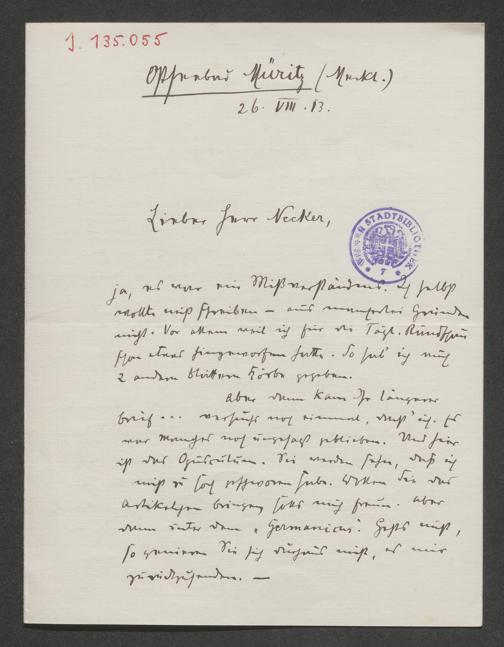 J. 135.055
Ostseebad Müritz (Meckl.)
26. VIII. 13.
Lieber Herr Necker,
WIENER STADTBIBLIOTHEK
ja, es war ein Mißverständnis. Ich selbst
wollte nicht schreiben – aus mancherlei Gründen
nicht. Vor allem weil ich für die Tägl. Rundschau
schon etwas hingeworfen hatte. So hab ich auch
2 andern Blättern Körbe gegeben.
Aber dann kam Ihr längerer
Brief ... versuchs noch einmal, dacht' ich. Es
war manches noch ungesagt geblieben. Und hier
ist das Opusculum. Sie werden sehen, daß ich
nicht zu hoch geschworen habe. Wollen Sie das
Artikelchen bringen, solls mich freun. Aber
dann unter dem „Germanicus". Gehts nicht,
so genieren Sie sich durchaus nicht, es mir
zurückzusenden. —